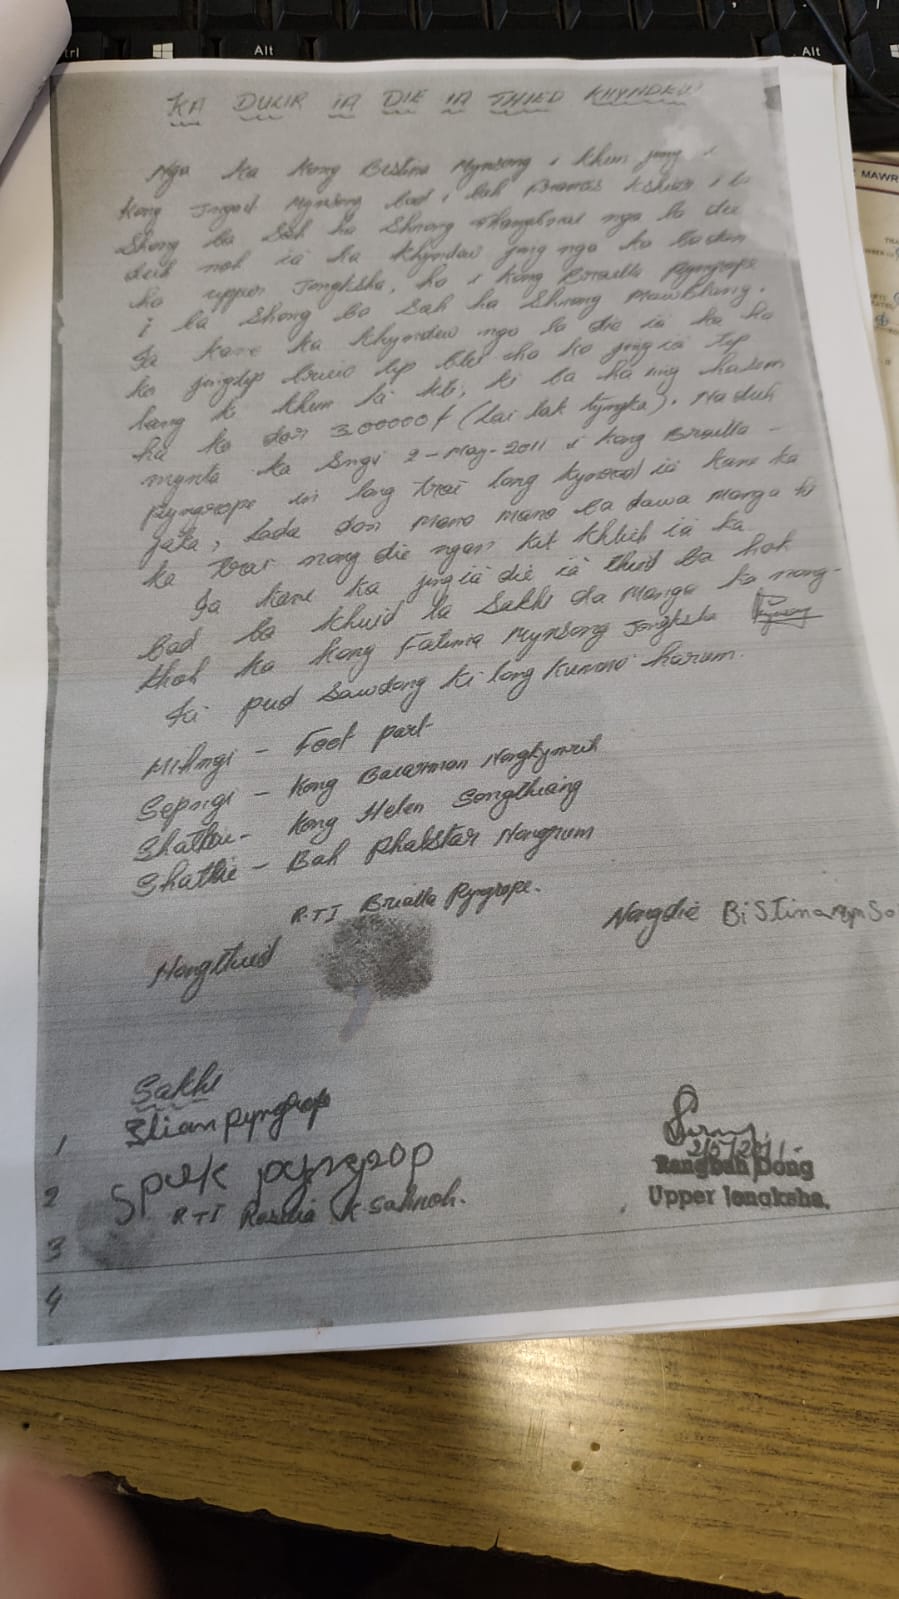 Ctrl
Alt
Alt
MAWR
KA DULIR IA DIE IA THIED KHYNDEW
Nga ka Kong Bistina Mynsong i khun jong i
Kong Jngait Mynsong bad i bah Kshiar i ba
Shong ba Sah ha Shnong nga la die
duh noh ia ka khyndew jong nga ka ba don
ha upper Jongksha, ha i Kong Brialla Pyngrope
i ba Shong ba Sah ha Shnong Mawblang.
Ia kane ka khyndew nga la die ia ka ha
ka jingtip briew tip blei ha ka jing ia tip
lang ki khun ki kti, ki ba ha ing hasem
ha ka dor 300000/ (Lai lak tyngka). Naduh
mynta ka Sngi 2-May-2011 i Kong Brialla -
Pyngrope in long trai long kynrad ia kane ka
jaka, lada don mano mano ba dawa manga ki
ka trai nong die ngan kit khlieh ia ka.
Ia kane ka jing ia die ia thied ba hok
bad ba khuid la Sakhi da manga ka nong-
thoh ka Kong Fatima Mynsong Jongksha
Ki pud Sawdong ki long kumno harum.
Mihngi - Foot part
Sepngi - Kong Baiarman Nongkynrih
Shathie - Kong Helen Songthiang
Shathie - Bah Phalstar Nongrum
R.T.I Brialla Pyngrope.
Nongdie BiStina
Nongthied
Sakhi
1 Slian pyngrop
2 Spik pyngrop
3 R.T.I K. Sahnoh.
4
2/5/2011
Rangbah Dong
Upper Jongksha.